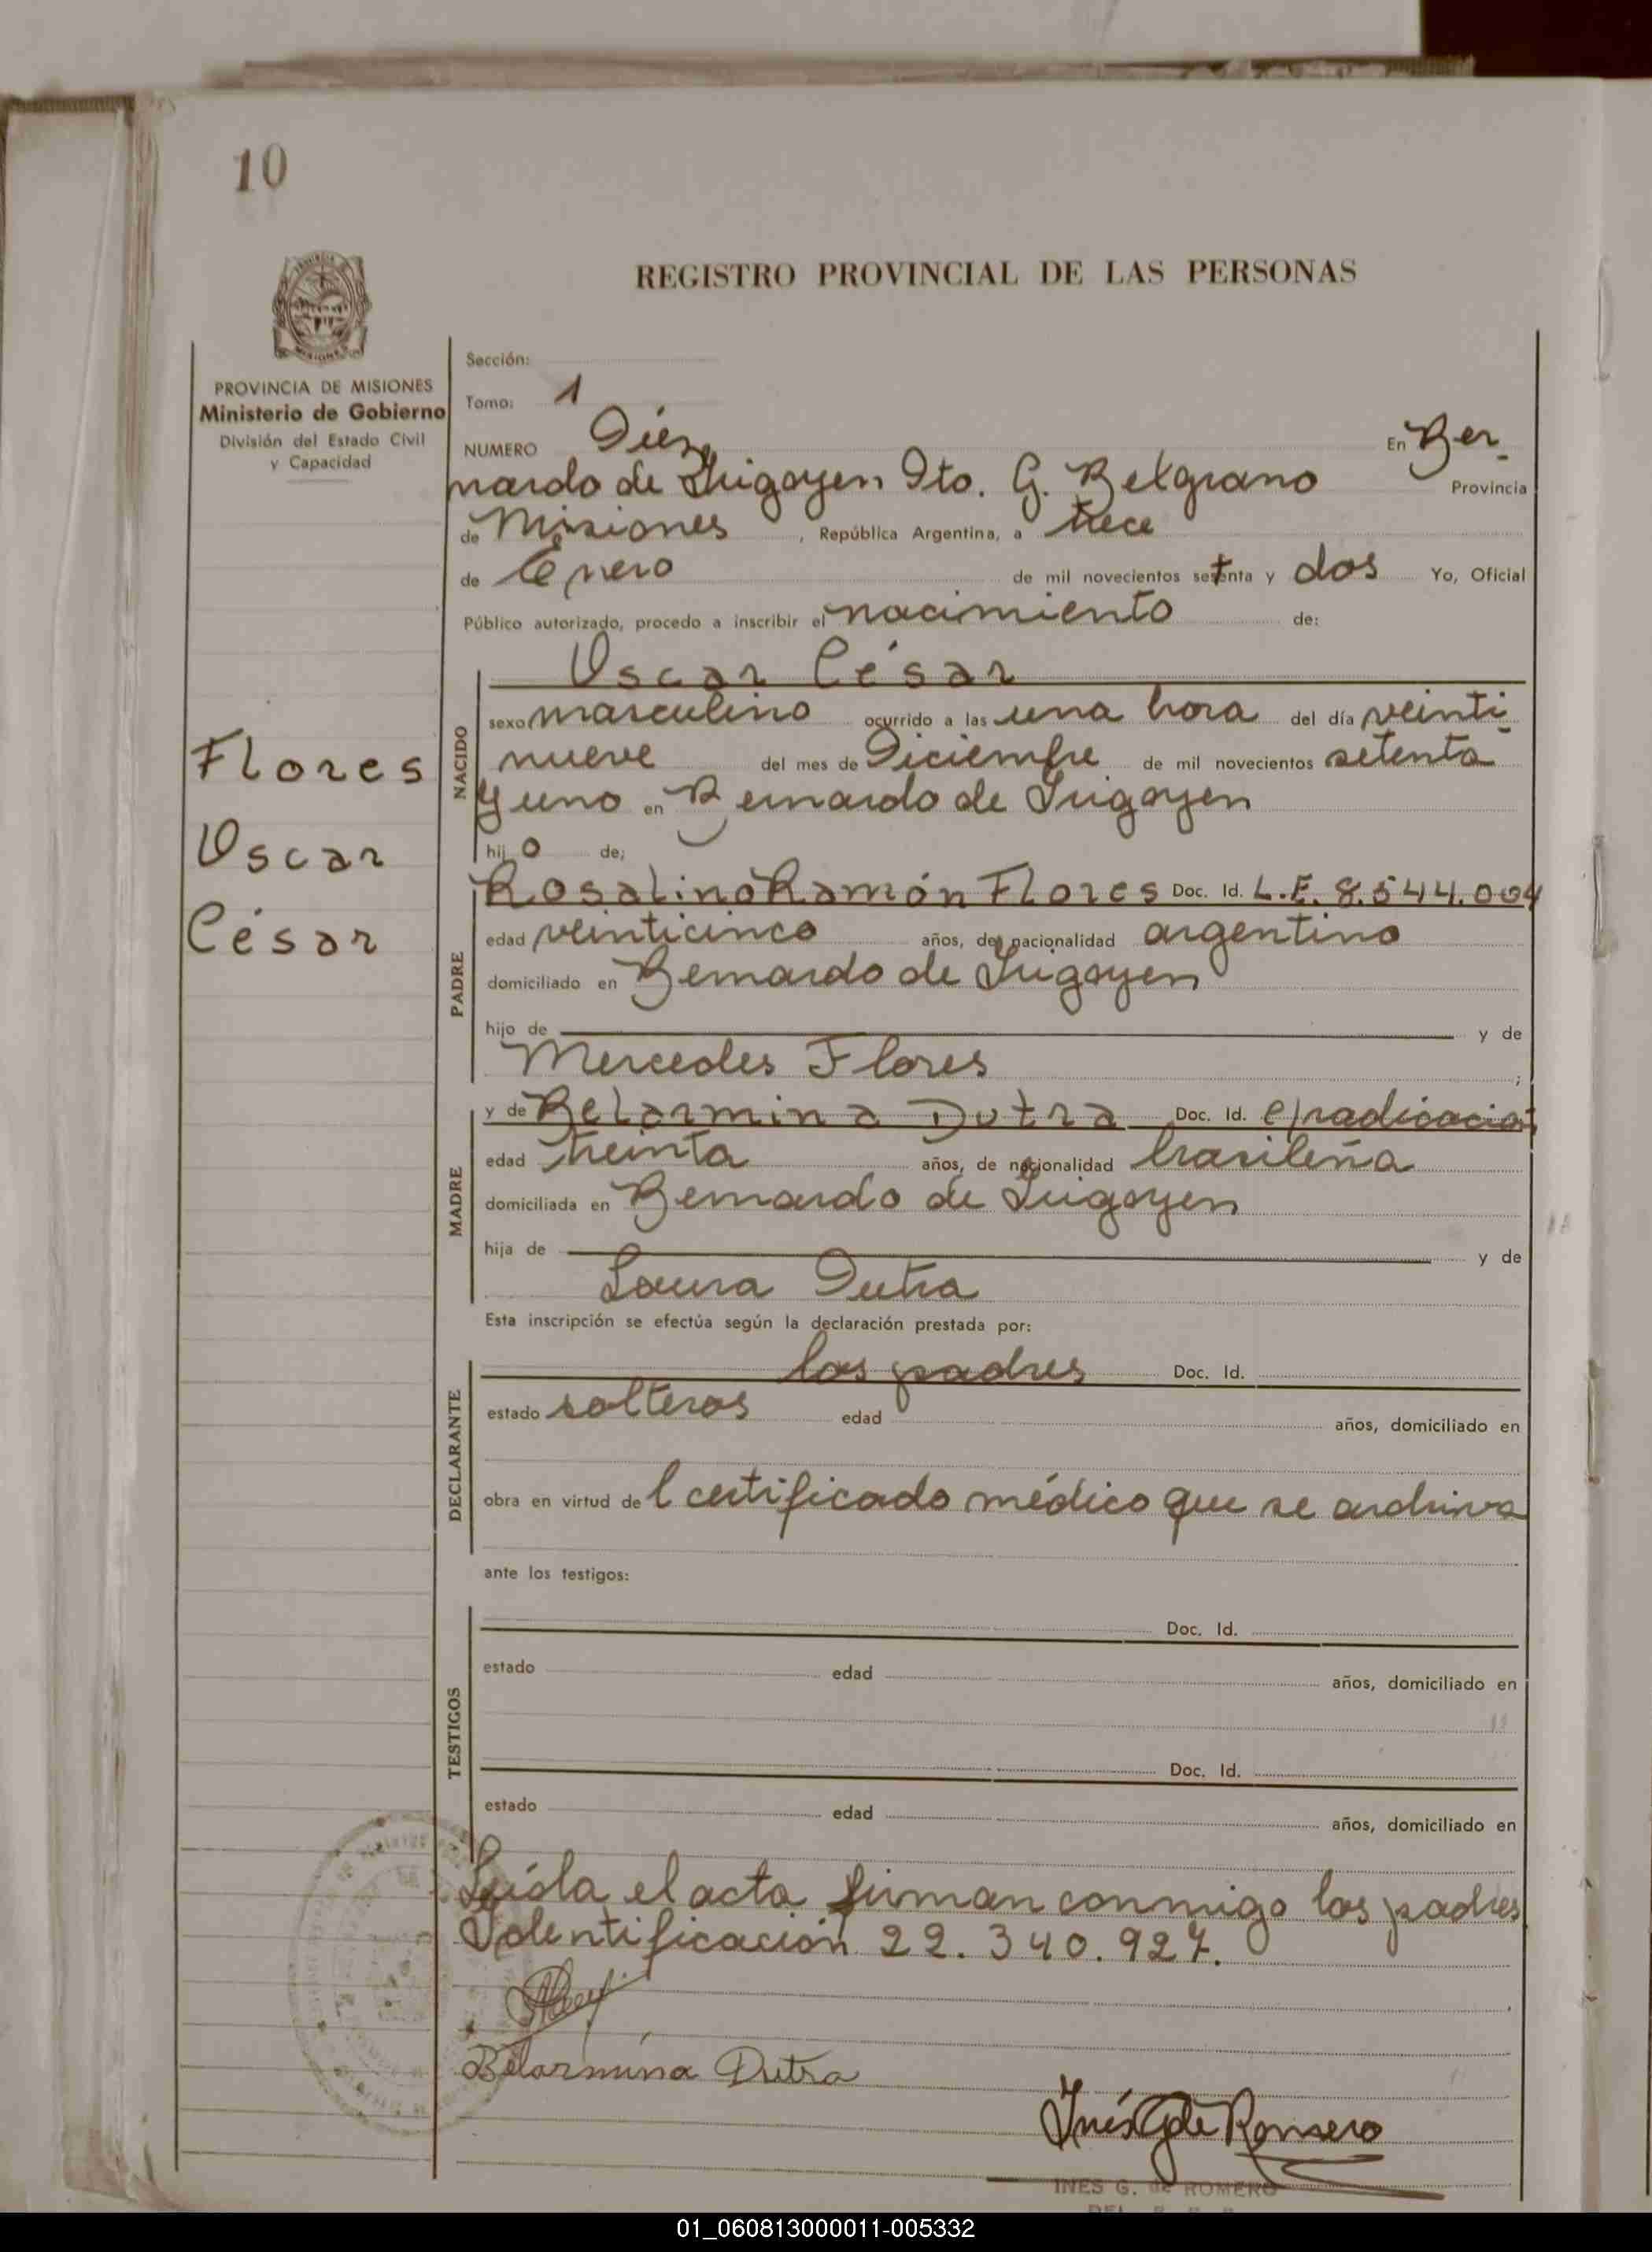 10
REGISTRO PROVINCIAL DE LAS PERSONAS
PROVINCIA DE MISIONES
Ministerio de Gobierno
División del Estado Civil
y Capacidad
Flores
Oscar
César
Sección:
Tomo: 1
NUMERO Diez En Ber-
nardo de Irigoyen Dto. G. Belgrano Provincia
de Misiones, República Argentina, a trece
de Enero de mil novecientos setenta y dos Yo, Oficial
Público autorizado, procedo a inscribir el nacimiento de:
Oscar César
NACIDO
sexo masculino ocurrido a las una hora del día veinti-
nueve del mes de Diciembre de mil novecientos setenta
y uno en Bernardo de Irigoyen
hijo de;
PADRE
Rosalino Ramón Flores Doc. Id. L.E. 8.544.004
edad veinticinco años, de nacionalidad argentino
domiciliado en Bernardo de Irigoyen
hijo de y de
Mercedes Flores ;
MADRE
y de Belarmina Dutra Doc. Id. e/radicación
edad treinta años, de nacionalidad brasileña
domiciliada en Bernardo de Irigoyen
hija de y de
Laura Dutra
Esta inscripción se efectúa según la declaración prestada por:
DECLARANTE
los padres Doc. Id.
estado solteros edad años, domiciliado en
obra en virtud del certificado médico que se archiva
ante los testigos:
TESTIGOS
Doc. Id.
estado edad años, domiciliado en
Doc. Id.
estado edad años, domiciliado en
Leída el acta firman conmigo los padres
Identificación 22.340.927.
Belarmina Dutra
Inés G de Romero
INES G. de ROMERO
01_060813000011-005332